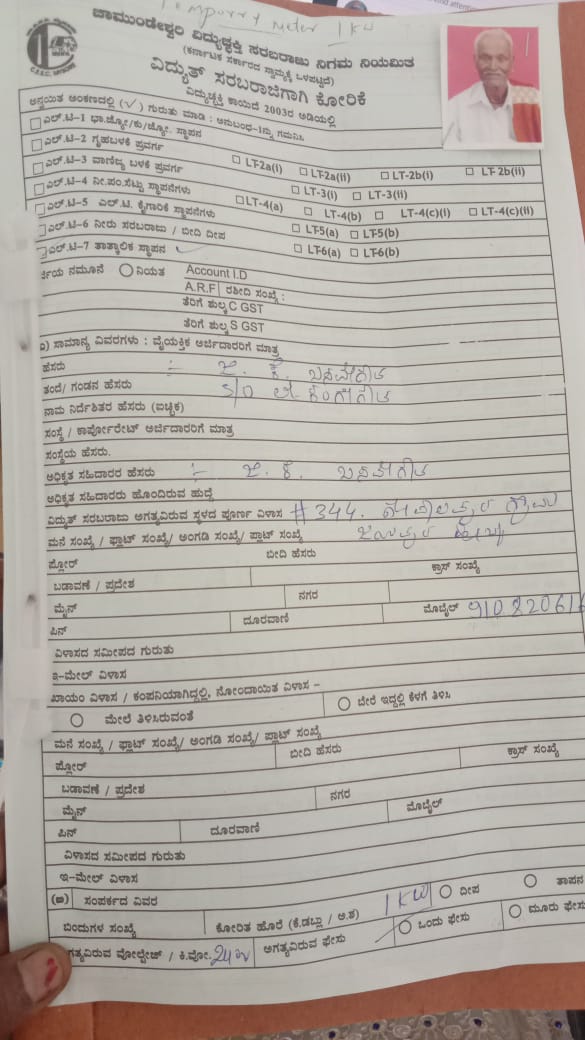 Temporary meter 1KW
ಚಾಮುಂಡೇಶ್ವರಿ ವಿದ್ಯುಚ್ಛಕ್ತಿ ಸರಬರಾಜು ನಿಗಮ ನಿಯಮಿತ
(ಕರ್ನಾಟಕ ಸರ್ಕಾರದ ಸ್ವಾಮ್ಯಕ್ಕೆ ಒಳಪಟ್ಟಿದೆ)
ವಿದ್ಯುತ್ ಸರಬರಾಜಿಗಾಗಿ ಕೋರಿಕೆ
ವಿದ್ಯುಚ್ಛಕ್ತಿ ಕಾಯಿದೆ 2003ರ ಅಡಿಯಲ್ಲಿ
ಅನ್ವಯಿತ ಅಂಕಣದಲ್ಲಿ (✓) ಗುರುತು ಮಾಡಿ : ಅನುಬಂಧ-1ನ್ನು ಗಮನಿಸಿ
ಎಲ್.ಟಿ-1 ಭಾ.ಜ್ಯೋ/ಕು/ಜ್ಯೋ. ಸ್ಥಾಪನ
ಎಲ್.ಟಿ-2 ಗೃಹಬಳಕೆ ಪ್ರವರ್ಗ LT-2a(i) LT-2a(ii) LT-2b(i) LT-2b(ii)
ಎಲ್.ಟಿ-3 ವಾಣಿಜ್ಯ ಬಳಕೆ ಪ್ರವರ್ಗ LT-3(i) LT-3(ii)
ಎಲ್.ಟಿ-4 ನೀ.ಪಂ.ಸೆಟ್ಟು ಸ್ಥಾಪನೆಗಳು LT-4(a) LT-4(b) LT-4(c)(i) LT-4(c)(ii)
ಎಲ್.ಟಿ-5 ಎಲ್.ಟಿ. ಕೈಗಾರಿಕೆ ಸ್ಥಾಪನೆಗಳು LT-5(a) LT-5(b)
ಎಲ್.ಟಿ-6 ನೀರು ಸರಬರಾಜು / ಬೀದಿ ದೀಪ LT-6(a) LT-6(b)
ಎಲ್.ಟಿ-7 ತಾತ್ಕಾಲಿಕ ಸ್ಥಾಪನ ✓
ನಮೂನೆ ನಿಯತ Account I.D
A.R.F ರಶೀದಿ ಸಂಖ್ಯೆ :
ತೆರಿಗೆ ಶುಲ್ಕ C GST
ತೆರಿಗೆ ಶುಲ್ಕ S GST
ಸಾಮಾನ್ಯ ವಿವರಗಳು : ವೈಯಕ್ತಿಕ ಅರ್ಜಿದಾರರಿಗೆ ಮಾತ್ರ
ಹೆಸರು :- ಜೆ. ಕೆ. ಬಸವೇಗೌಡ
ತಂದೆ/ ಗಂಡನ ಹೆಸರು S/O ಲೇ ಕೆಂಗೇಗೌಡ
ನಾಮ ನಿರ್ದೇಶಿತರ ಹೆಸರು (ಐಚ್ಛಿಕ)
ಸಂಸ್ಥೆ / ಕಾರ್ಪೋರೇಟ್ ಅರ್ಜಿದಾರರಿಗೆ ಮಾತ್ರ
ಸಂಸ್ಥೆಯ ಹೆಸರು.
ಅಧಿಕೃತ ಸಹಿದಾರರ ಹೆಸರು :- ಜೆ. ಕೆ. ಬಸವೇಗೌಡ
ಅಧಿಕೃತ ಸಹಿದಾರರು ಹೊಂದಿರುವ ಹುದ್ದೆ
ವಿದ್ಯುತ್ ಸರಬರಾಜು ಅಗತ್ಯವಿರುವ ಸ್ಥಳದ ಪೂರ್ಣ ವಿಳಾಸ #344.
ಮನೆ ಸಂಖ್ಯೆ / ಫ್ಲಾಟ್ ಸಂಖ್ಯೆ/ ಅಂಗಡಿ ಸಂಖ್ಯೆ/ ಪ್ಲಾಟ್ ಸಂಖ್ಯೆ
ಫ್ಲೋರ್ ಬೀದಿ ಹೆಸರು ಕ್ರಾಸ್ ಸಂಖ್ಯೆ
ಬಡಾವಣೆ / ಪ್ರದೇಶ
ಮೈನ್ ನಗರ
ಪಿನ್ ದೂರವಾಣಿ ಮೊಬೈಲ್
ವಿಳಾಸದ ಸಮೀಪದ ಗುರುತು
ಇ-ಮೇಲ್ ವಿಳಾಸ
ಖಾಯಂ ವಿಳಾಸ / ಕಂಪನಿಯಾಗಿದ್ದಲ್ಲಿ, ನೋಂದಾಯಿತ ವಿಳಾಸ –
ಮೇಲೆ ತಿಳಿಸಿರುವಂತೆ ಬೇರೆ ಇದ್ದಲ್ಲಿ ಕೆಳಗೆ ತಿಳಿಸಿ
ಮನೆ ಸಂಖ್ಯೆ / ಫ್ಲಾಟ್ ಸಂಖ್ಯೆ/ ಅಂಗಡಿ ಸಂಖ್ಯೆ/ ಪ್ಲಾಟ್ ಸಂಖ್ಯೆ
ಫ್ಲೋರ್ ಬೀದಿ ಹೆಸರು ಕ್ರಾಸ್ ಸಂಖ್ಯೆ
ಬಡಾವಣೆ / ಪ್ರದೇಶ
ಮೈನ್ ನಗರ
ಪಿನ್ ದೂರವಾಣಿ ಮೊಬೈಲ್
ವಿಳಾಸದ ಸಮೀಪದ ಗುರುತು
ಇ-ಮೇಲ್ ವಿಳಾಸ
ಸಂಪರ್ಕದ ವಿವರ ದೀಪ ತಾಪನ
ಬಿಂದುಗಳ ಸಂಖ್ಯೆ ಕೋರಿತ ಹೊರೆ (ಕೆ.ಡಬ್ಲ್ಯು / ಅ.ಶ) 1KW ಒಂದು ಫೇಸು ಮೂರು ಫೇಸು
ವೋಲ್ಟೇಜ್ / ಕಿ.ವೋ. ಅಗತ್ಯವಿರುವ ಫೇಸು